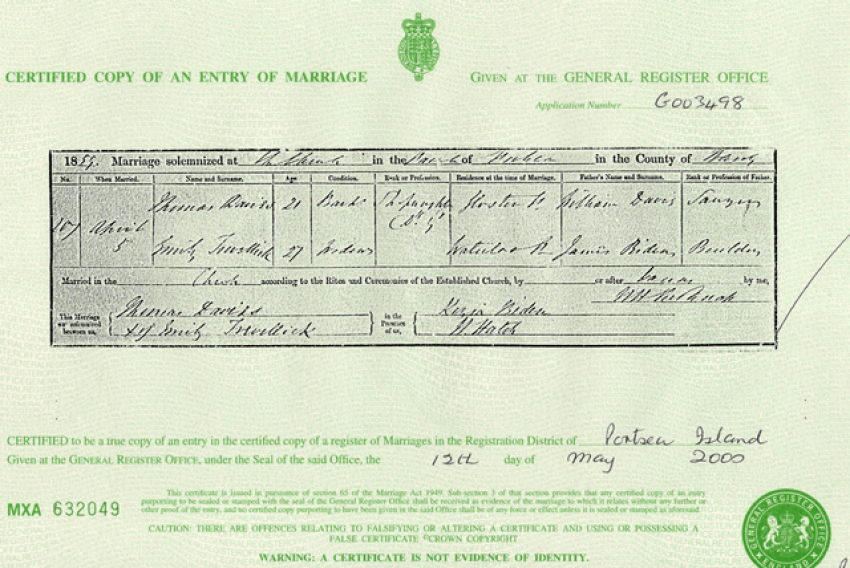 CERTIFIED COPY OF AN ENTRY OF MARRIAGE
GIVEN AT THE GENERAL REGISTER OFFICE
Application Number G003498
1859. Marriage solemnized at in the of in the County of
No. When Married. Name and Surname. Age Condition. Rank or Profession. Residence at the time of Marriage. Father's Name and Surname. Rank or Profession of Father.
Thomas Davies 21 William Davis Sawyer
107 April
5 Emily 27 James Biden Builder
Married in the Church according to the Rites and Ceremonies of the Established Church, by or after by me,
This Marriage was solemnized between us,
Thomas Davies
Emily
in the Presence of us,
Kezia Biden
CERTIFIED to be a true copy of an entry in the certified copy of a register of Marriages in the Registration District of Portsea Island
Given at the GENERAL REGISTER OFFICE, under the Seal of the said Office, the 12th day of May 2000
MXA 632049
This certificate is issued in pursuance of section 65 of the Marriage Act 1949. Sub-section 3 of that section provides that any certified copy of an entry
purporting to be sealed or stamped with the seal of the General Register Office shall be received as evidence of the marriage to which it relates without any further or
other proof of the entry, and no certified copy purporting to have been given in the said Office shall be of any force or effect unless it is sealed or stamped as aforesaid.
CAUTION: THERE ARE OFFENCES RELATING TO FALSIFYING OR ALTERING A CERTIFICATE AND USING OR POSSESSING A
FALSE CERTIFICATE ©CROWN COPYRIGHT
WARNING: A CERTIFICATE IS NOT EVIDENCE OF IDENTITY.
GENERAL REGISTER OFFICE
ENGLAND